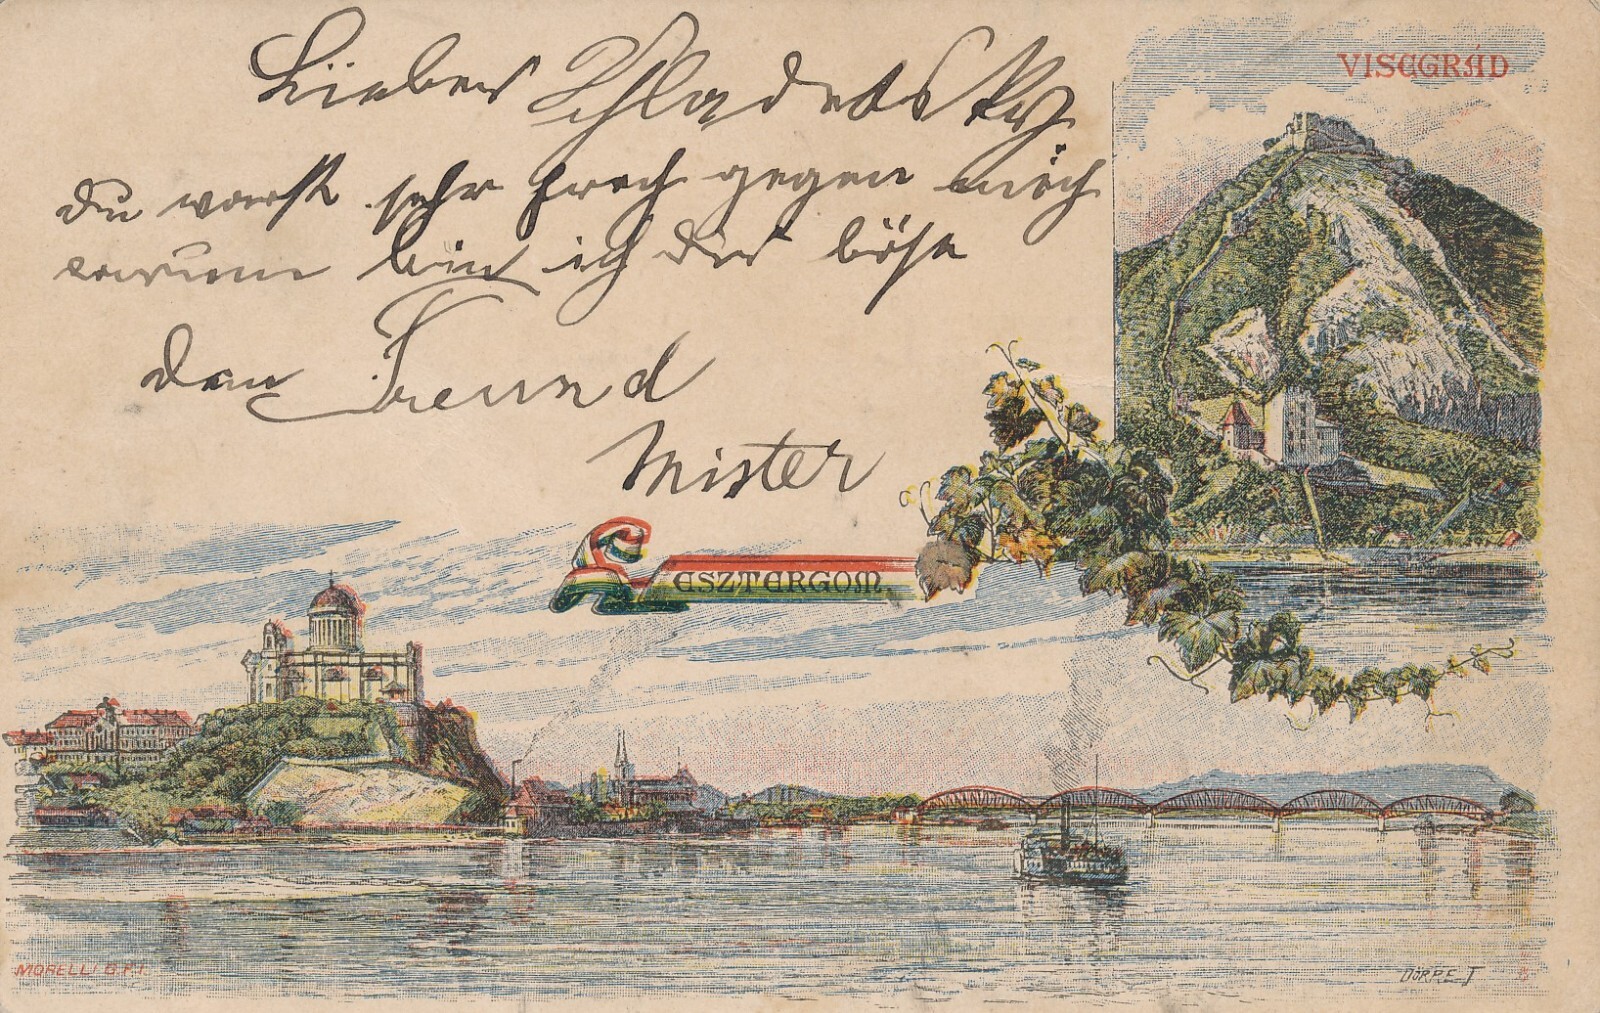 Lieber Schladetsky
du warst sehr frech gegen mich
warum bin ich dir böse
dein Freund
Mister
VISEGRÁD
ESZTERGOM
MORELLI G. F. I.
DÖRRE T